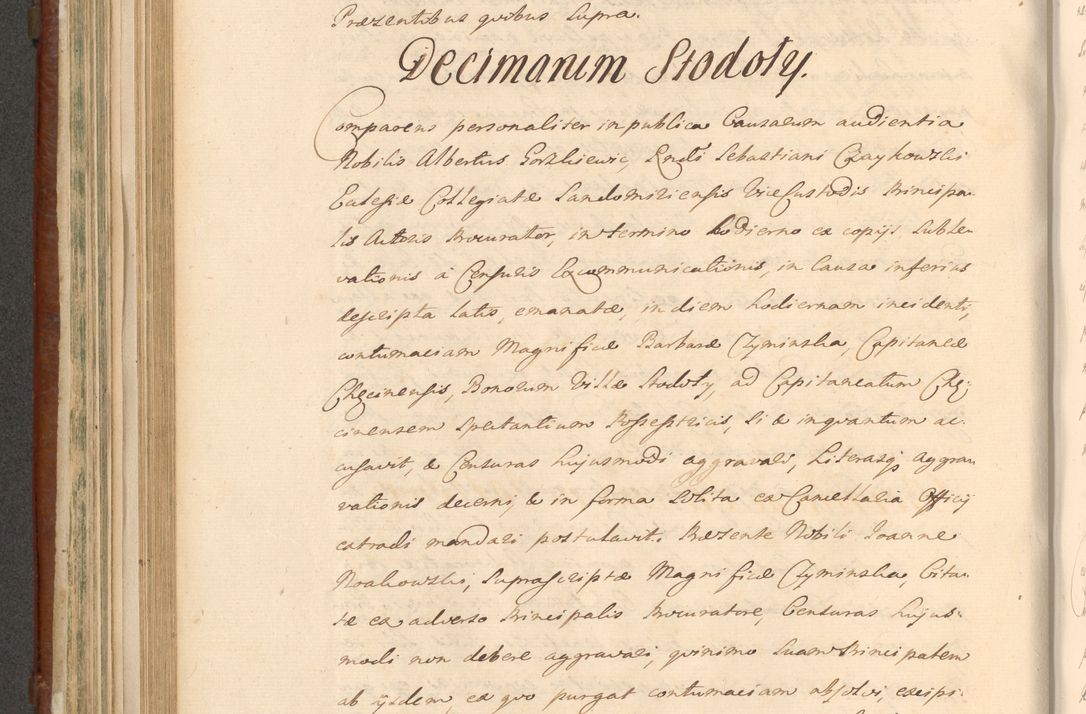 Præsentibus quibus supra.
Decimarum Stodoły.
Comparens personaliter in publica Causarum audientia
Nobilis Albertus Gorzkiewic, Rndi Sebastiani Czaykowski
Eccłesiæ Collegiatæ Sandomiriensis ViceCustodis Principa-
lis Actoris Procurator, in termino hodierno ex copijs Suble-
vationis à Censuris Excommunicationis, in Causa inferius
descripta latis, emanatæ, in diem hodiernam incidenti,
contumaciam Magnificæ Barbaræ Czyminska, Capitaneæ
Chęcinensis, Bonorum Villæ Stodoły, ad Capitaneatum Chę-
cinensem spectantium Possestricis, si & inquantum ac-
cusavit, & Censuras hujusmodi aggravari, Literasq aggra-
vationis decerni, & in forma solita ex Cancellaria Officij
extradi mandari postulavit. Præsente Nobili Joanne
Krakowski, suprascriptæ Magnificæ Czyminska, Cita-
tæ ex adverso Principalis Procuratore, Censuras hujus-
modi non debere aggravari, quinimo suam Principalem
ab ijsdem, ex quo purgat contumaciam absolvi, excipi-